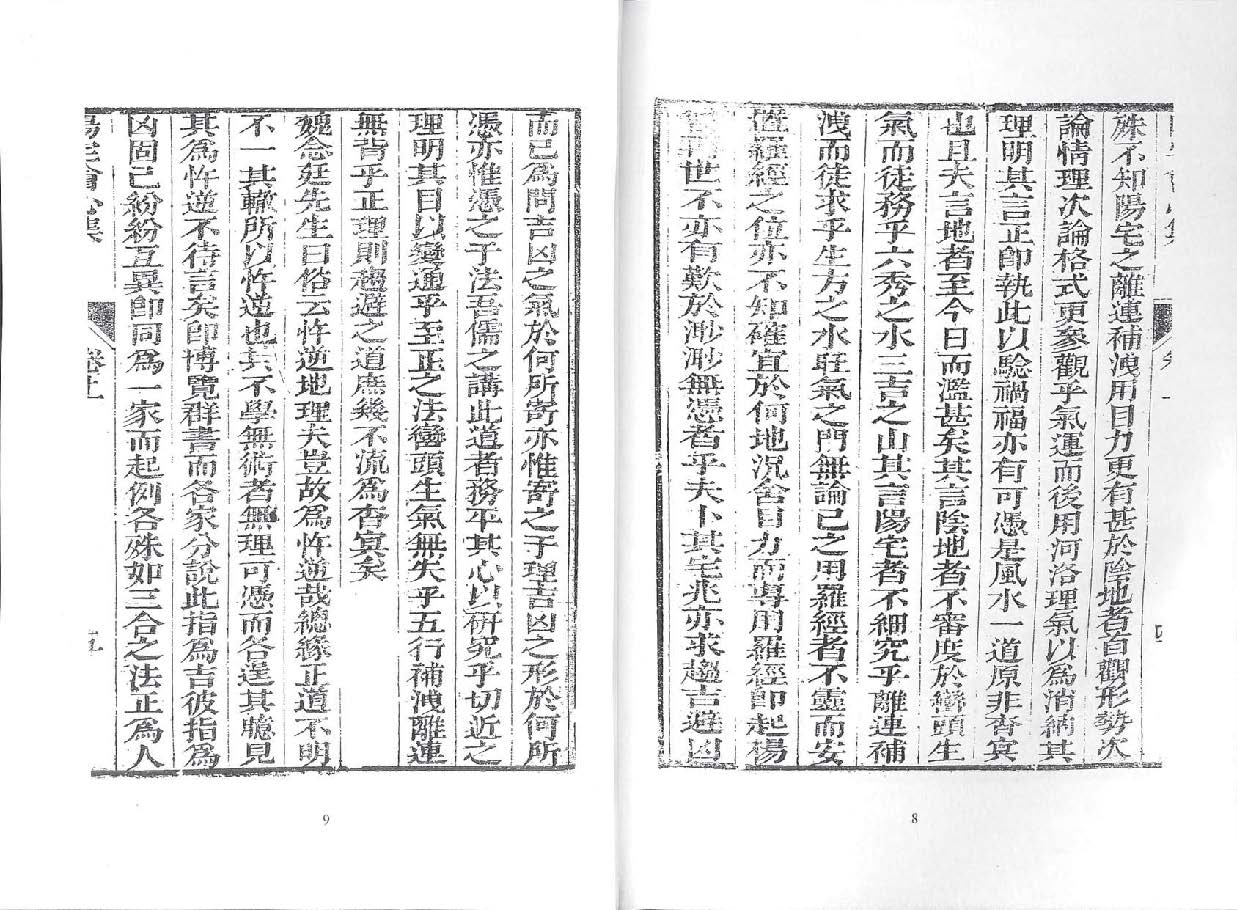 殊不知陽宅之離連補洩用目力更有甚於陰地者首觀形勢次
論情理次論格式更參觀乎氣運而後用河洛理氣以為消納其
理明其言正即執此以驗禍福亦有可憑是風水一道原非杳冥
也且夫言地者至今日而濫甚矣其言陰地者不審度於巒頭生
氣而徒務乎六秀之水三吉之山其言陽宅者不細究乎離連補
洩而徒求乎生方之水旺氣之門無論已之用羅經者不靈而安
羅經之位亦不知確宜於何地況舍目力而專用羅經即起楊
世不亦有歎於渺渺無憑者乎夫卜其宅兆亦求趨吉避凶
四
8
而已為問吉凶之氣於何所寄亦惟寄之于理吉凶之形於何所
憑亦惟憑之于法吾儒之講此道者務平其心以研究乎切近之
理明其目以變通乎至正之法巒頭生氣無失乎五行補洩離連
無背乎正理則趨避之道庶幾不流為杳冥矣
魏念廷先生曰俗云忤逆地理夫豈故為忤逆哉總緣正道不明
不一其轍所以忤逆也其不學無術者無理可憑而各逞其臆見
其為忤逆不待言矣即博覽群書而各家分說此指為吉彼指為
凶固已紛紛互異即同為一家而起例各殊如三合之法正為人
五
9